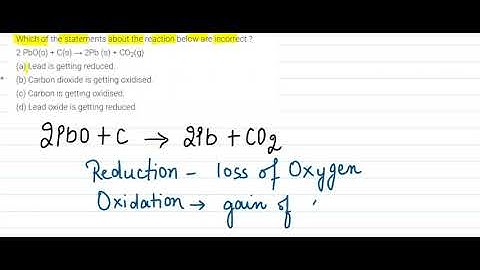 Which of the statements about the reaction below are incorrect ?
2 PbO(s) + C(s) → 2Pb (s) + CO₂(g)
(a) Lead is getting reduced.
(b) Carbon dioxide is getting oxidised.
(c) Carbon is getting oxidised.
(d) Lead oxide is getting reduced.
2PbO + C → 2Pb + CO₂
Reduction - loss of Oxygen
Oxidation → gain of